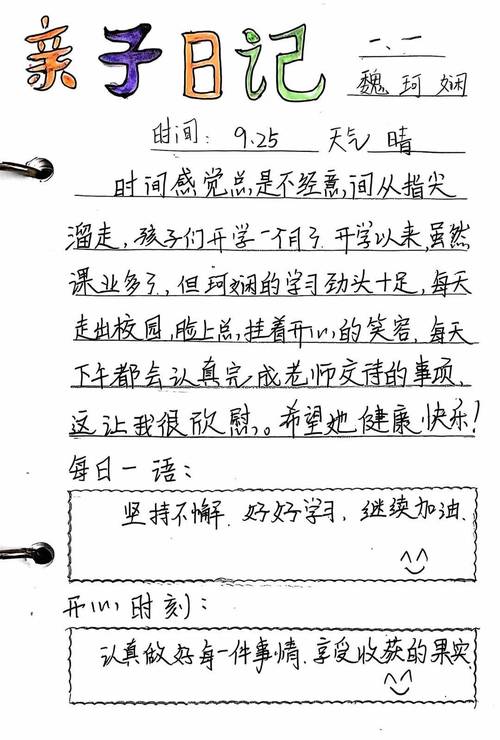 亲子日记
一、一
魏珂娴
时间: 9.25 天气 晴
时间感觉总是不经意间从指尖
溜走,孩子们开学一个月了.开学以来,虽然
课业多了,但珂娴的学习劲头十足,每天
走出校园,脸上总挂着开心的笑容.每天
下午都会认真完成老师交待的事项,
这让我很欣慰。希望她健康、快乐!
每日一语:
坚持不懈.好好学习,继续加油.
开心时刻:
认真做好每一件事情.享受收获的果实